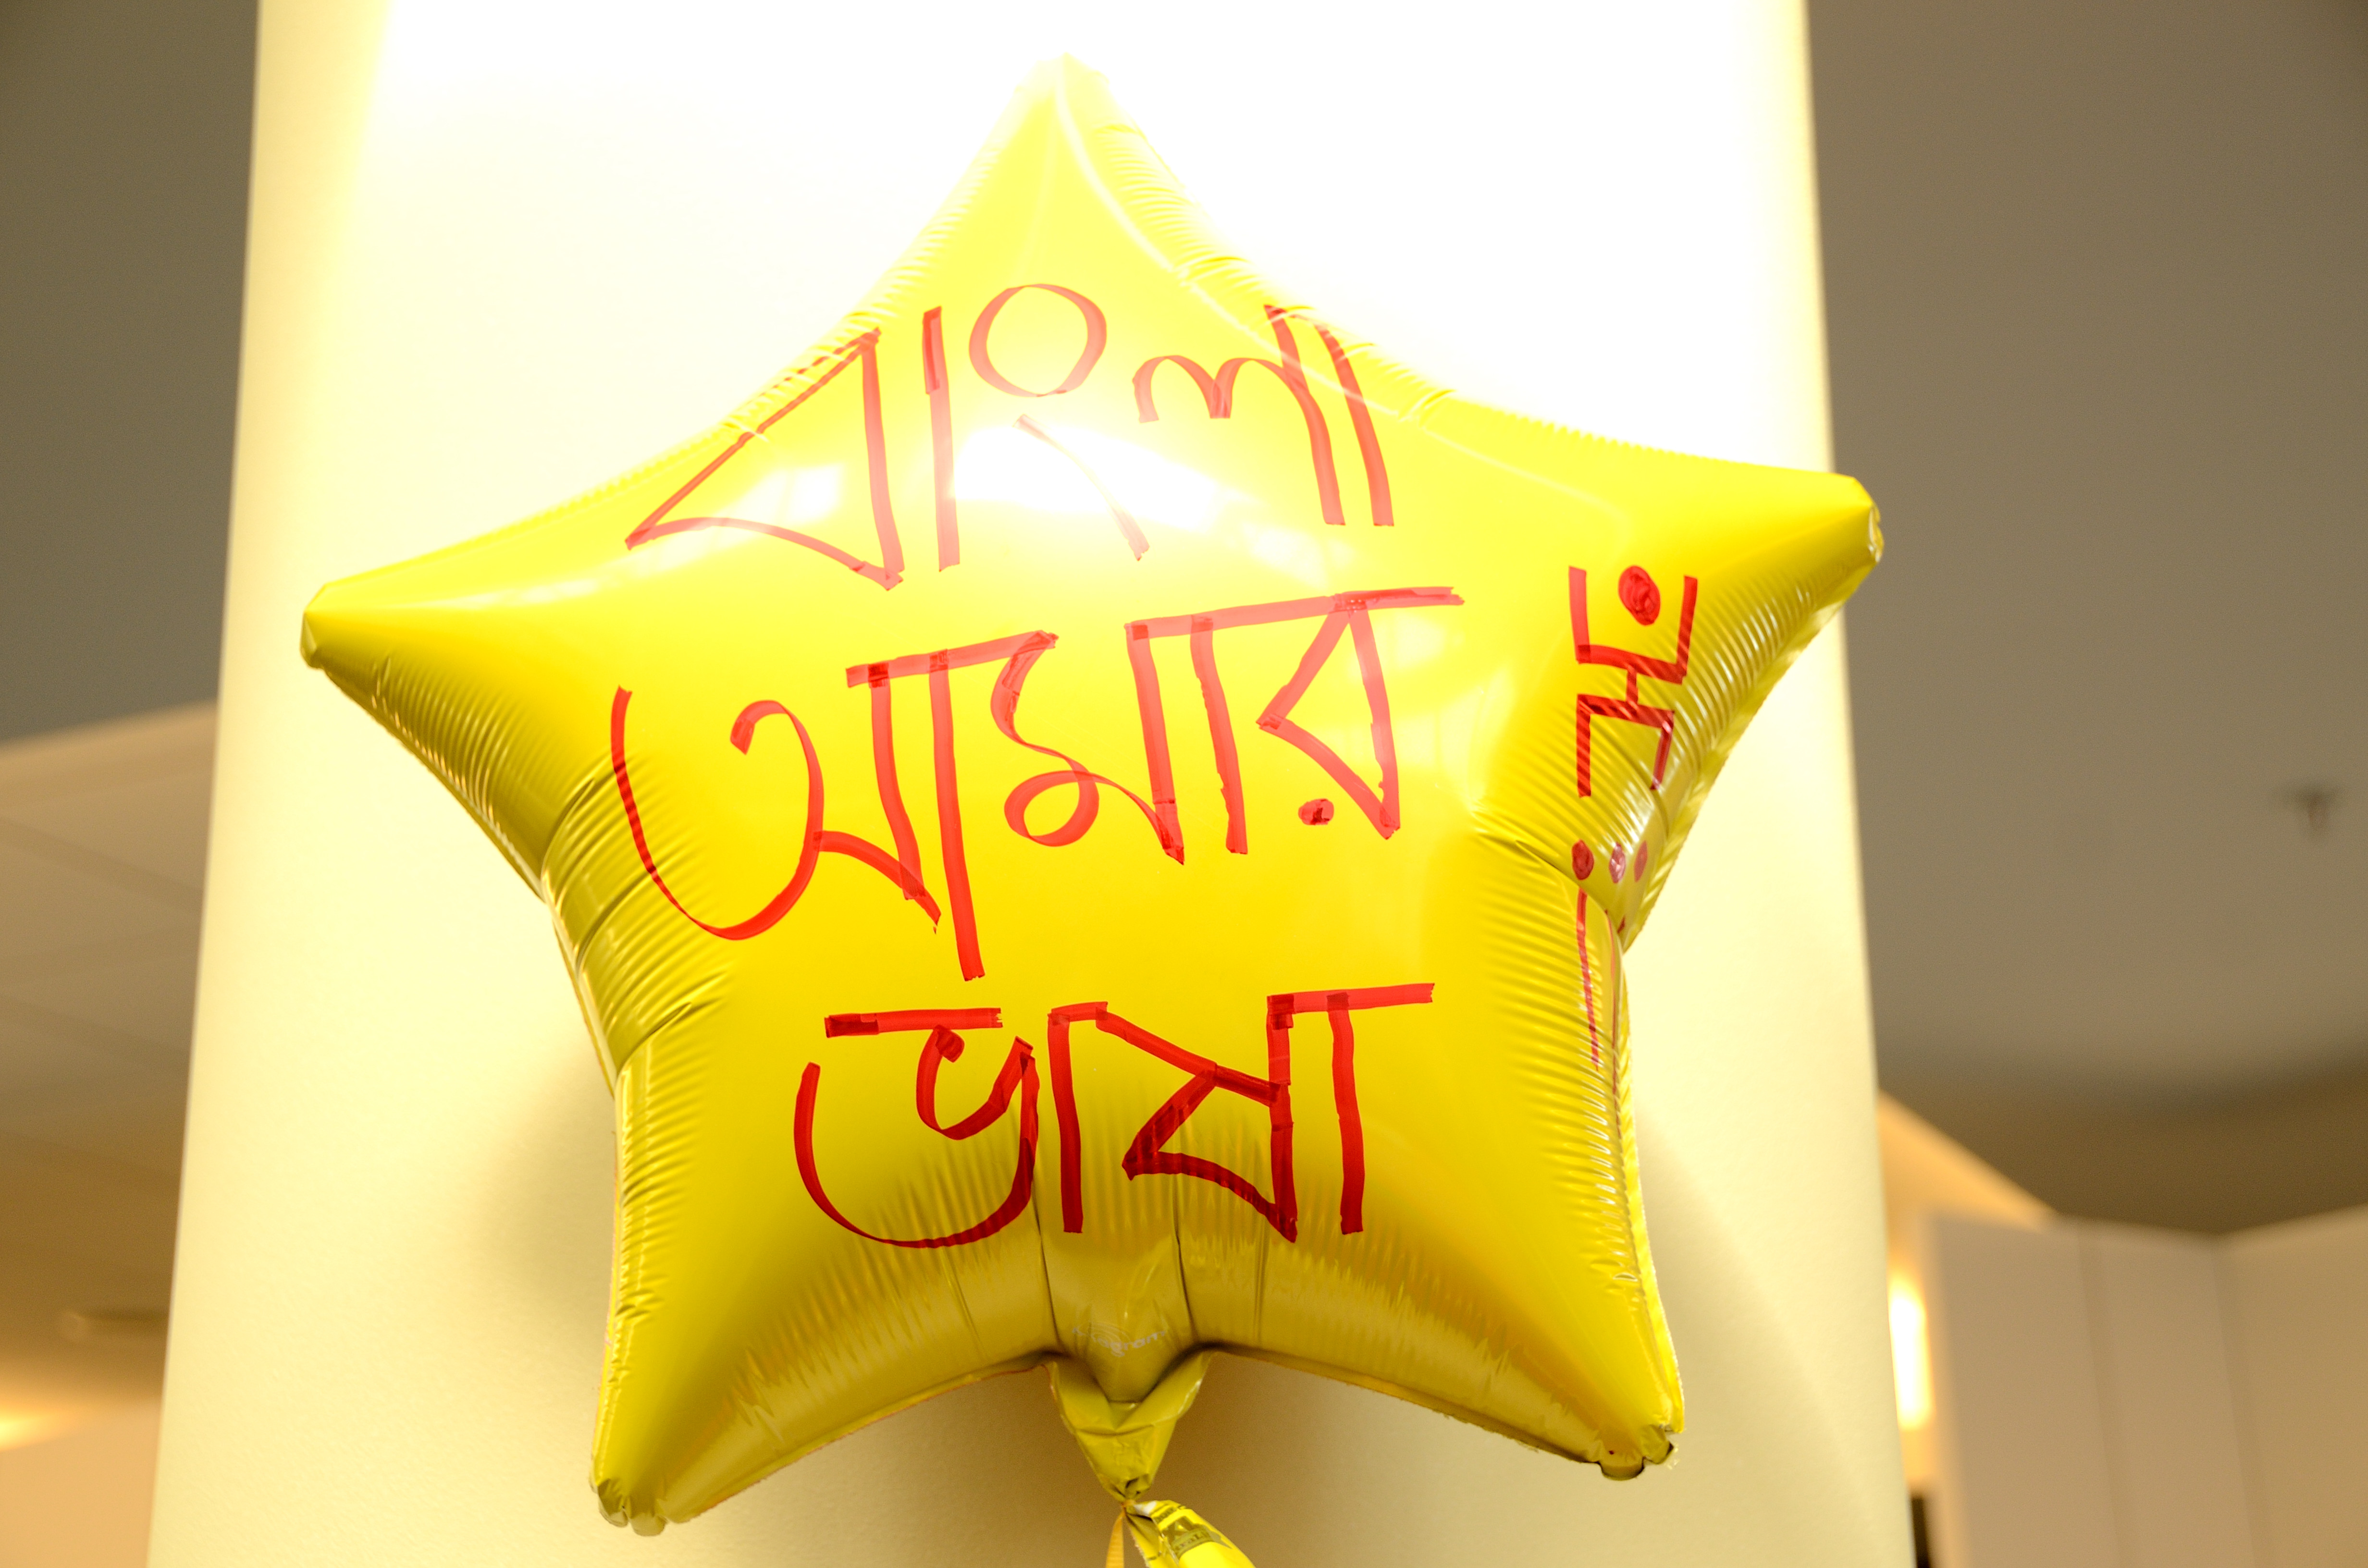 বাংলা
আমার
ভাষা